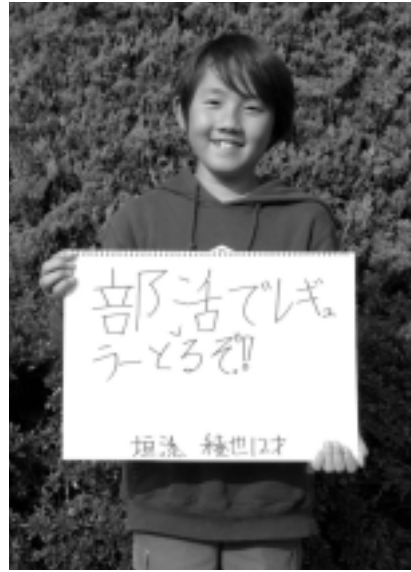 部活でレギュ
ラーとるぞ!!
也12才